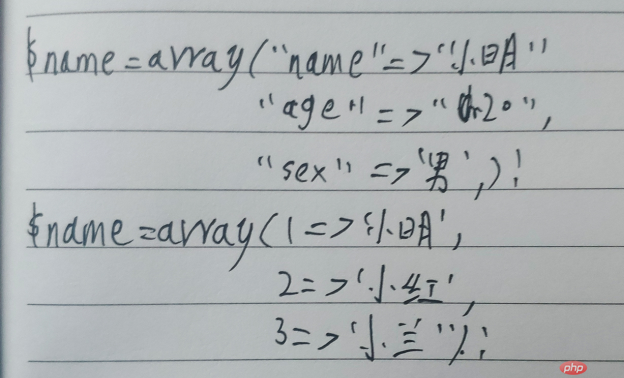 $name=array("name"=>"小明"
"age"=>"20",
"sex"=>'男',)!
$name=array(1=>'小明',
2=>'小红',
3=>'小兰'');
php